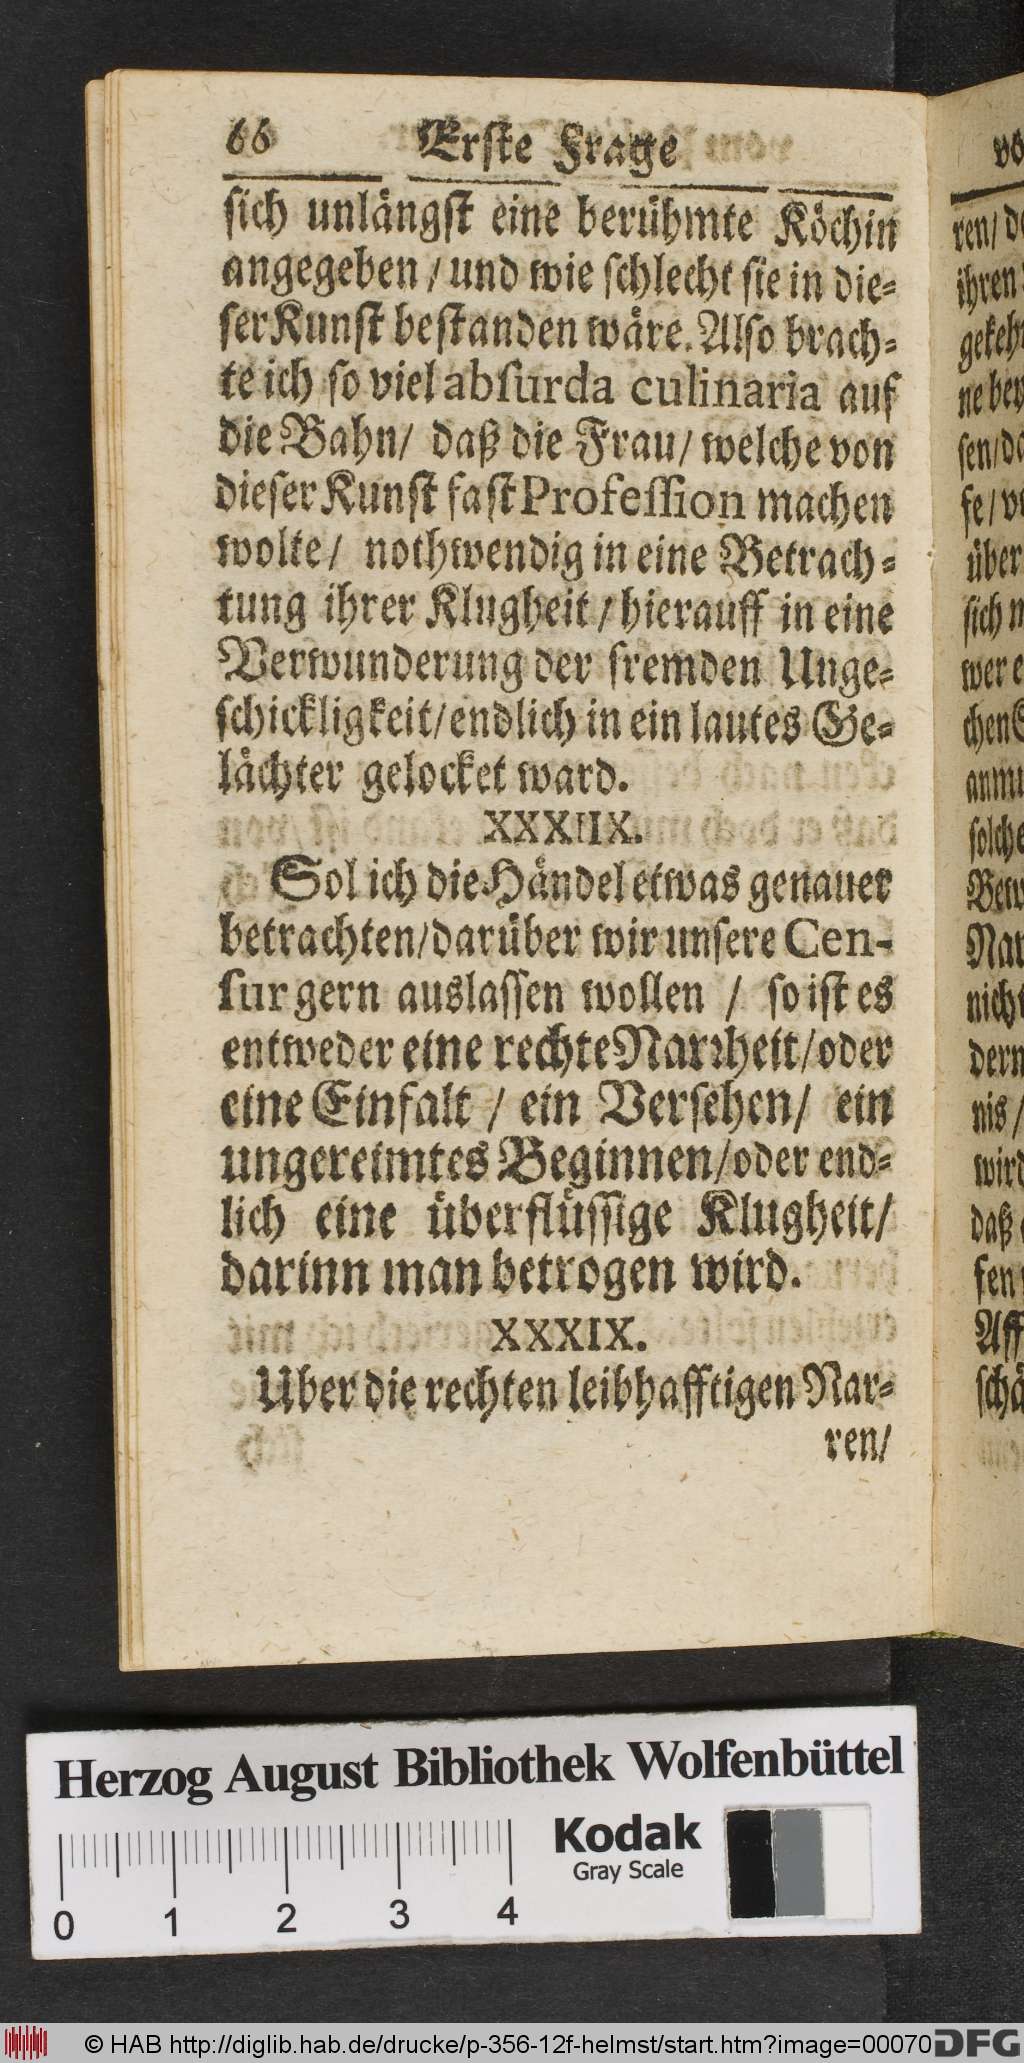 66 Erste Frage
sich unlängst eine berühmte Köchin
angegeben / und wie schlecht sie in die-
ser Kunst bestanden wäre. Also brach-
te ich so viel absurda culinaria auf
die Bahn/ daß die Frau/ welche von
dieser Kunst fast Profession machen
wolte/ nothwendig in eine Betrach-
tung ihrer Klugheit / hierauff in eine
Verwunderung der fremden Unge-
schickligkeit/ endlich in ein lautes Ge-
lächter gelocket ward.
XXXIIX.
Sol ich die Händel etwas genauer
betrachten/ darüber wir unsere Cen-
sur gern auslassen wollen / so ist es
entweder eine rechte Narrheit/ oder
eine Einfalt / ein Versehen/ ein
ungereimtes Beginnen/ oder end-
lich eine überflüssige Klugheit/
darinn man betrogen wird.
XXXIX.
Uber die rechten leibhafftigen Nar-
ren/
vo
ren/ d
ihren
gekehr
ne bey
sen/ da
fe/ v
über
sich m
wer e
chen
anmu
solche
Betr
Nar
nicht
dern
nis /
wird
daß
fen
Aff
schä
Herzog August Bibliothek Wolfenbüttel
0 1 2 3 4
Kodak
Gray Scale
© HAB http://diglib.hab.de/drucke/p-356-12f-helmst/start.htm?image=00070
DFG